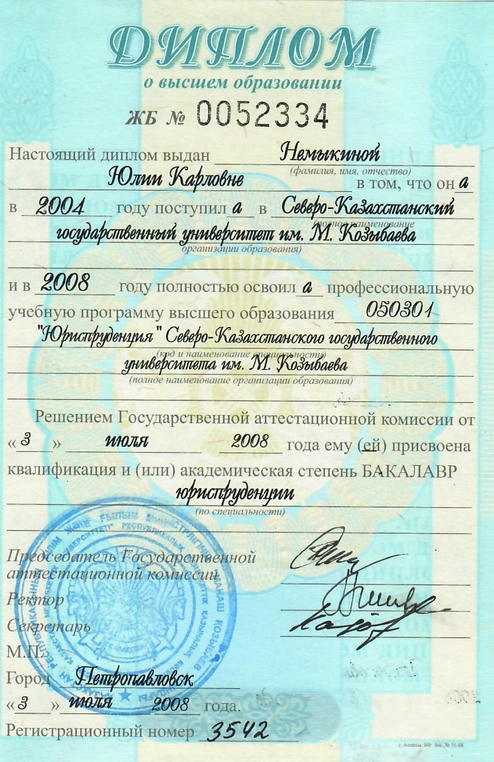 ДИПЛОМ
о высшем образовании
ЖБ № 0052334
Настоящий диплом выдан Немыкиной
(фамилия, имя, отчество)
Юлии Карловне в том, что он а
в 2004 году поступил а в Северо-Казахстанский
государственный университет им. М. Козыбаева
организации образования)
и в 2008 году полностью освоил а профессиональную
учебную программу высшего образования 050301
"Юриспруденция" Северо-Казахстанского государственного
(код и наименование специальности)
университета им. М. Козыбаева
(полное наименование организации образования)
Решением Государственной аттестационной комиссии от
« 3 » июля 2008 года ему (ей) присвоена
квалификация и (или) академическая степень БАКАЛАВР
юриспруденции
(по специальности)
Председатель Государственной
аттестационной комиссии
Ректор
Секретарь
М.П.
Город Петропавловск
« 3 » июля 2008 года.
Регистрационный номер 3542